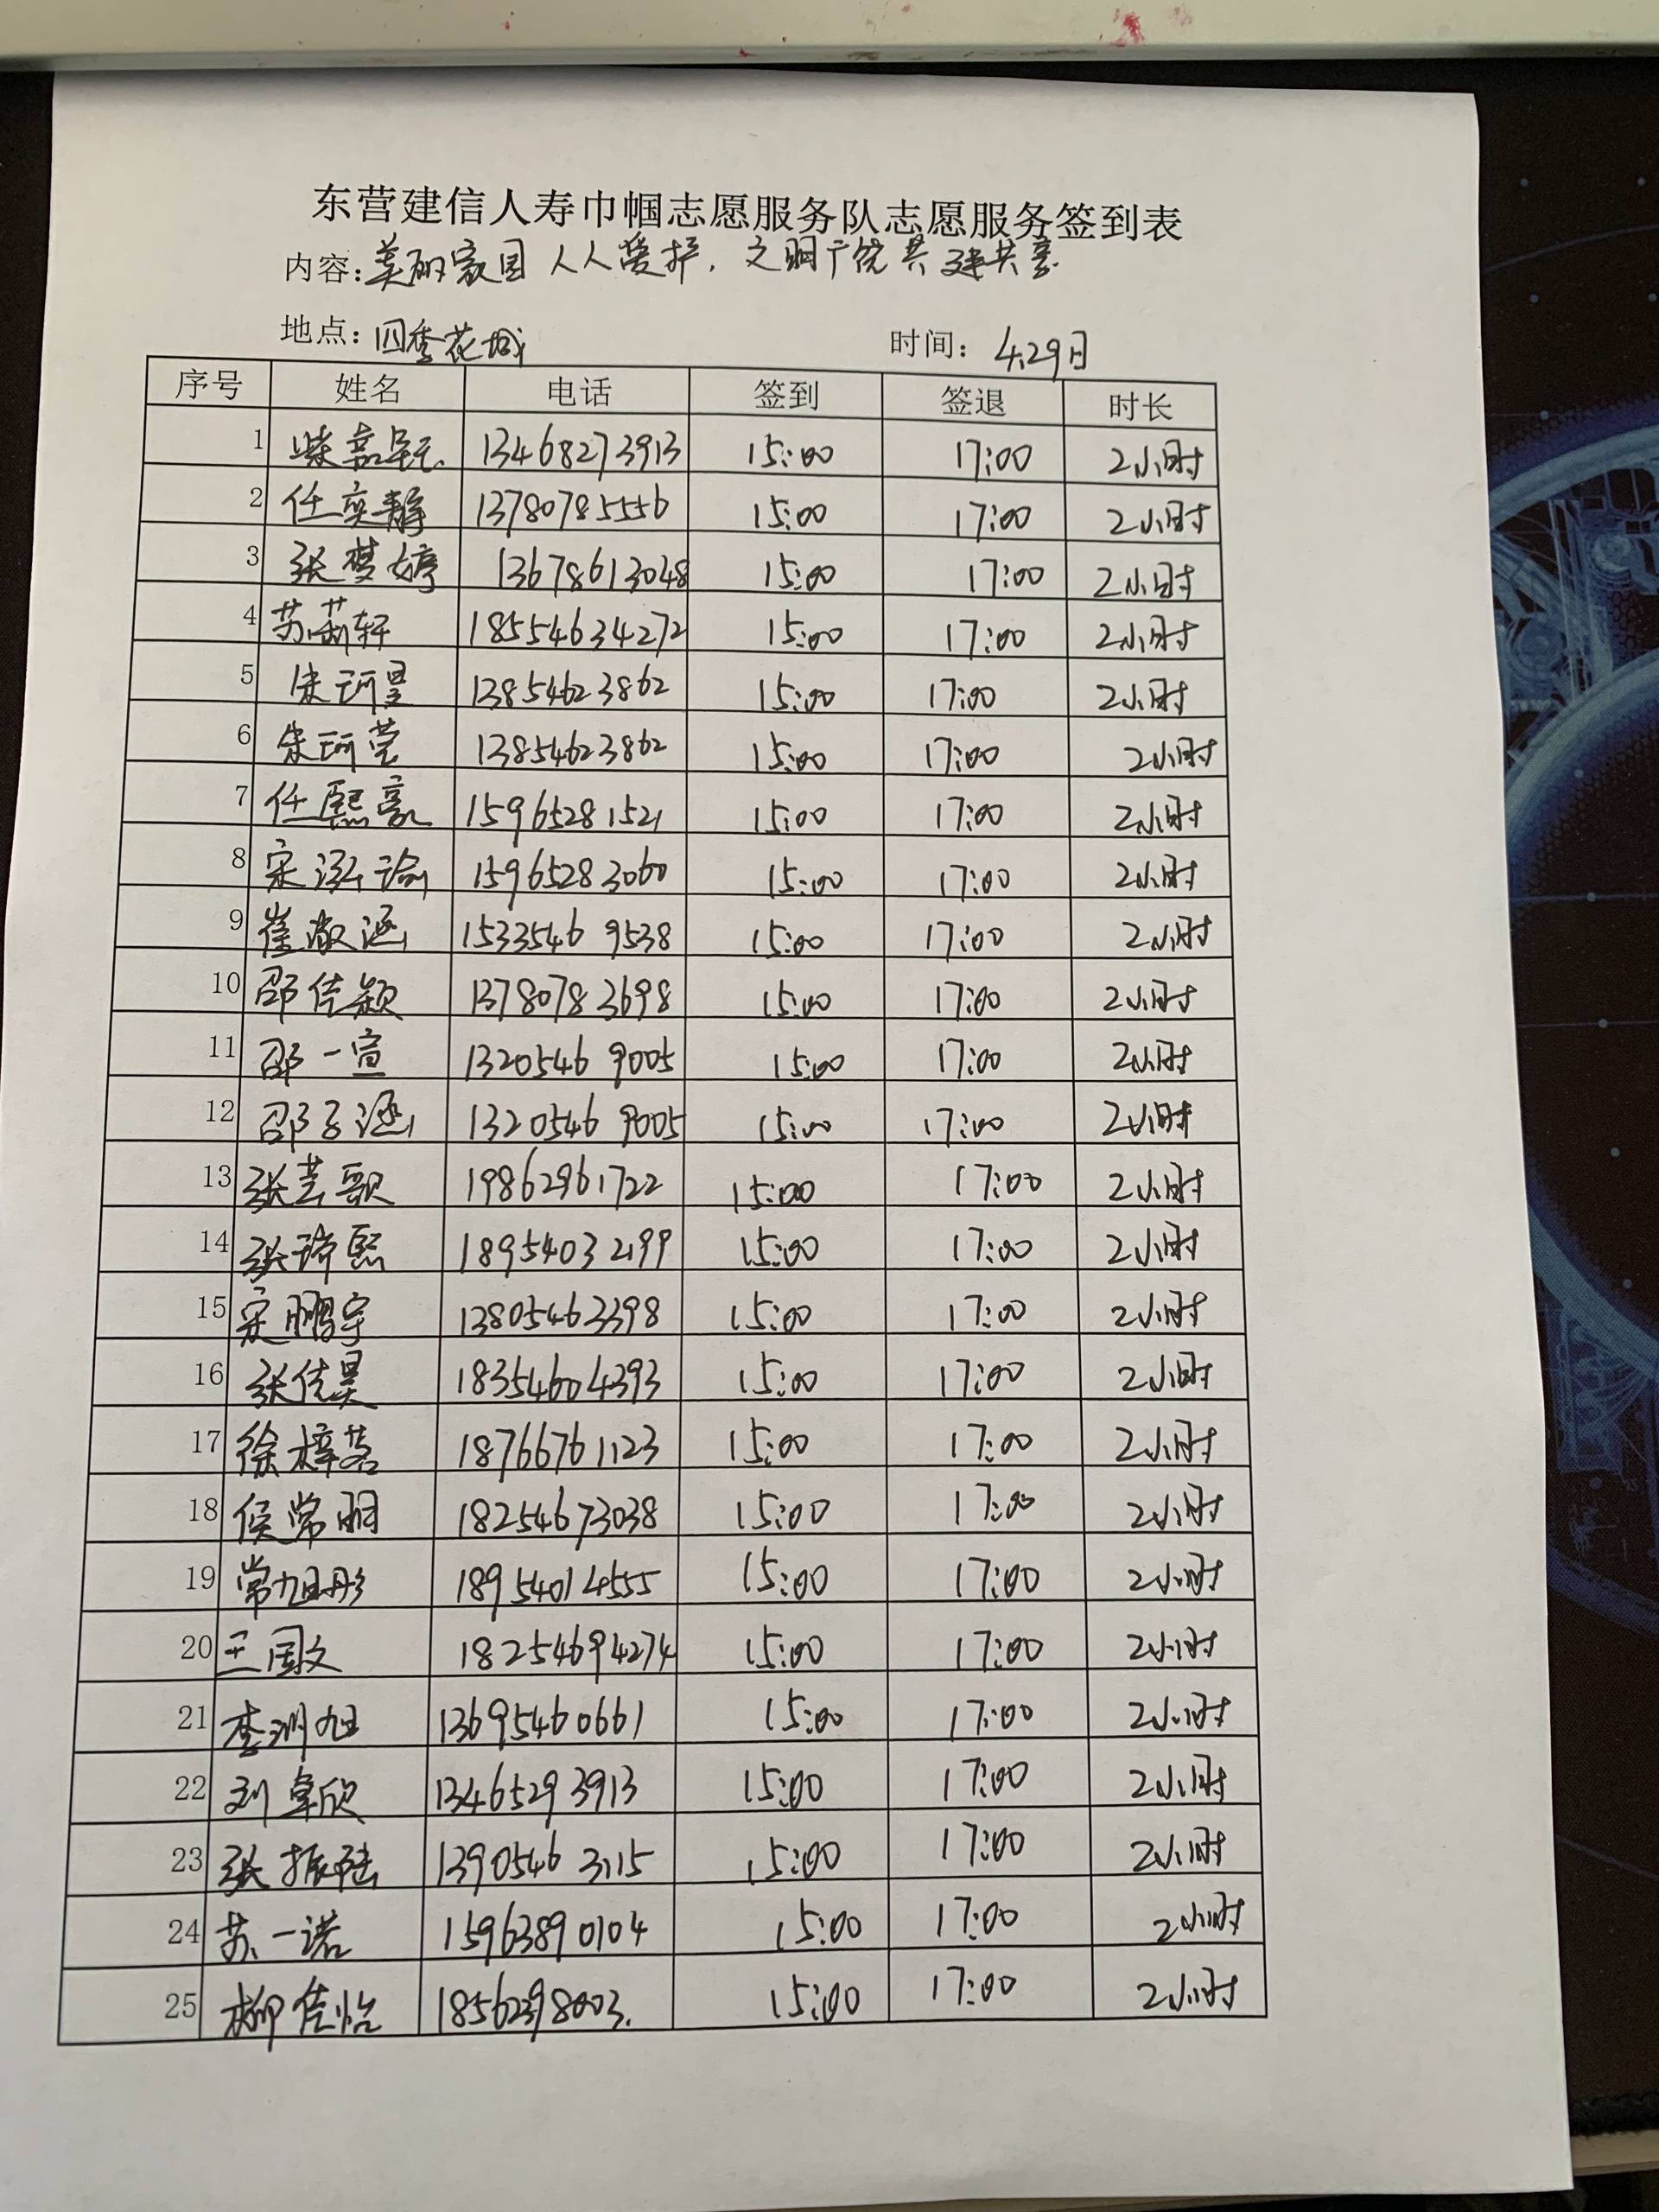 东营建信人寿巾帼志愿服务队志愿服务签到表
内容:美丽家园 人人爱护,文明广饶 共建共享
地点:四季花城 时间:4.29日
序号 姓名 电话 签到 签退 时长
1 柴嘉钰 13468273913 15:00 17:00 2小时
2 任奕静 13780785556 15:00 17:00 2小时
3 张梦婷 13678613048 15:00 17:00 2小时
4 苏莉轩 18554634272 15:00 17:00 2小时
5 宋珂昱 13854623862 15:00 17:00 2小时
6 宋珂莹 13854623862 15:00 17:00 2小时
7 任熙豪 15965281521 15:00 17:00 2小时
8 宋泓谕 15965283060 15:00 17:00 2小时
9 崔淑涵 15335469538 15:00 17:00 2小时
10 邵佳颖 13780783698 15:00 17:00 2小时
11 邵一宣 13205469005 15:00 17:00 2小时
12 邵子涵 13205469005 15:00 17:00 2小时
13 张芸歌 19862961722 15:00 17:00 2小时
14 张琦熙 18954032199 15:00 17:00 2小时
15 宋鹏宇 13805463398 15:00 17:00 2小时
16 张佳昊 18354604393 15:00 17:00 2小时
17 徐梓茗 18766761123 15:00 17:00 2小时
18 侯常明 18254673038 15:00 17:00 2小时
19 常旭彤 18954014555 15:00 17:00 2小时
20 王国文 18254694274 15:00 17:00 2小时
21 李洲旭 13695460661 15:00 17:00 2小时
22 刘卓欣 13465293913 15:00 17:00 2小时
23 张振陆 13905463115 15:00 17:00 2小时
24 苏一诺 15963890104 15:00 17:00 2小时
25 柳佳怡 18562398003. 15:00 17:00 2小时